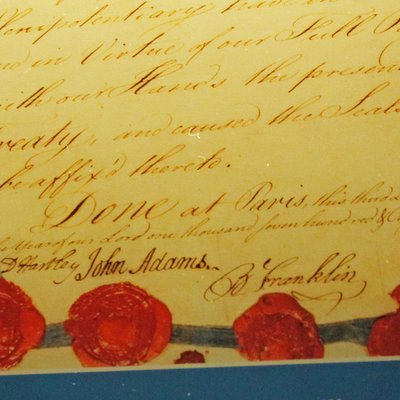 Plenipotentiary have in
and in Virtue of our Full
with our Hands the present
Treaty, and caused the Seals
be affix'd thereto.
Done at Paris, this third d
Year of our Lord one thousand seven hundred &
D Hartley John Adams. B Franklin